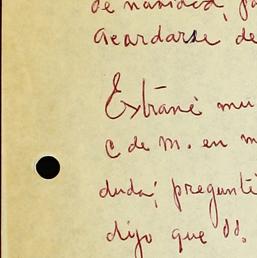 de navidad, pa
acordarse de
Extrañé mu
C de M. en m
duda; pregunté
dijo que Ud.